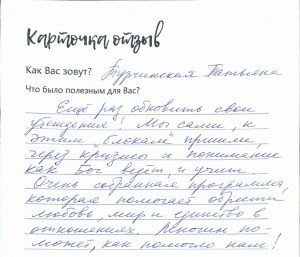 Карточка отзыв
Как Вас зовут? Турчинская Татьяна
Что было полезным для Вас?
Ещё раз обновить свои
убеждения! Мы сами, к
этим "блокам" пришли,
через кризисы и понимание
как Бог ведёт и учит.
Очень собранная программа,
которая помогает обрести
любовь, мир и единство в
отношениях. Многим по-
может, как помогло нам!